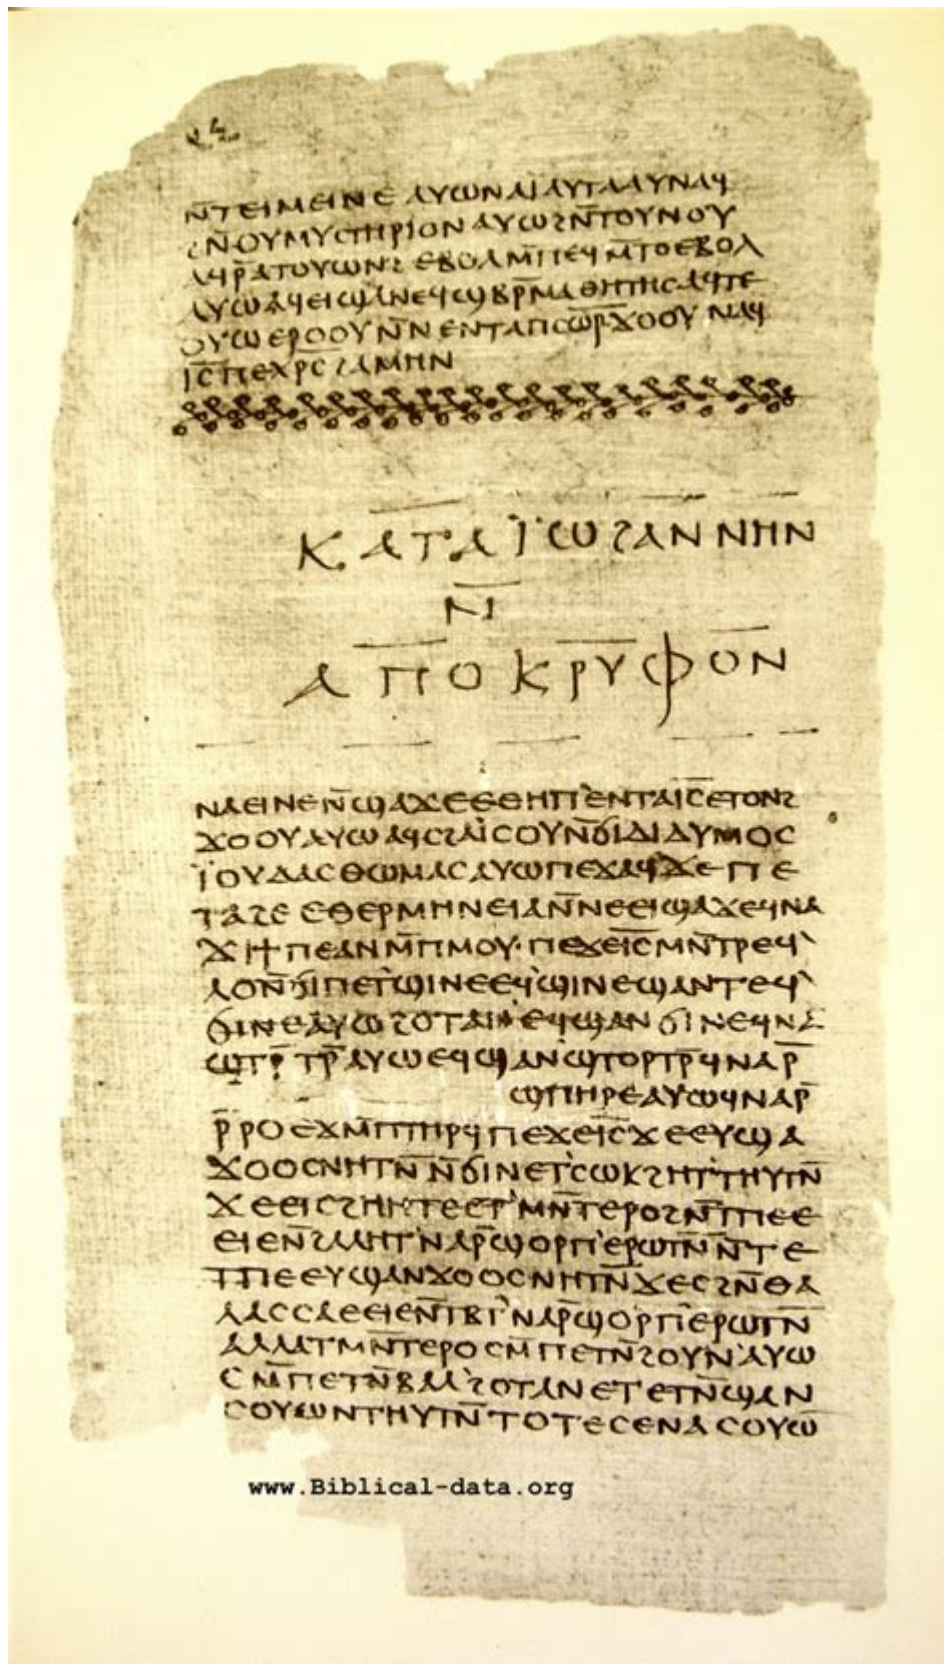 ⲛ̄ⲧⲉⲓⲙⲉⲓⲛⲉ ⲁⲩⲱ ⲛⲁⲓ ⲁⲩⲧⲁⲁⲩ ⲛⲁϥ
ϩⲛ̄ ⲟⲩⲙⲩⲥⲧⲏⲣⲓⲟⲛ ⲁⲩⲱ ϩⲛ̄ ⲧⲟⲩⲛⲟⲩ
ⲁϥⲣ̄ⲁⲧⲟⲩⲱⲛϩ ⲉⲃⲟⲗ ⲙ̄ⲡⲉϥⲙ̄ⲧⲟ ⲉⲃⲟⲗ
ⲁⲩⲱ ⲁϥⲉⲓ ϣⲁ ⲛⲉϥϣⲃⲣ̄ⲙⲁⲑⲏⲧⲏⲥ ⲁϥⲧⲉ
ⲟⲩⲱ ⲉⲣⲟⲟⲩ ⲛ̄ⲛⲉⲛⲧⲁ ⲡⲥⲱ̄ⲣ̄ ϫⲟⲟⲩ ⲛⲁϥ
ⲓ̄ⲥ̄ ⲡⲉⲭⲣ̄ⲥ̄ ϩⲁⲙⲏⲛ
ⲕⲁⲧⲁ ⲓ̈ⲱϩⲁⲛⲛⲏⲛ
ⲛ̄ⲓ̄
ⲁⲡⲟⲕⲣⲩⲫⲟⲛ
ⲛⲁⲉⲓ ⲛⲉ ⲛ̄ϣⲁϫⲉ ⲉⲑⲏⲡ ⲉⲛⲧⲁ ⲓ̄ⲥ̄ ⲉⲧⲟⲛϩ
ϫⲟⲟⲩ ⲁⲩⲱ ⲁϥⲥϩⲁⲓ̈ⲥⲟⲩ ⲛ̄ϭⲓ ⲇⲓⲇⲩⲙⲟⲥ
ⲓ̈ⲟⲩⲇⲁⲥ ⲑⲱⲙⲁⲥ ⲁⲩⲱ ⲡⲉϫⲁϥ ϫⲉ ⲡⲉ
ⲧⲁϩⲉ ⲉⲑⲉⲣⲙⲏⲛⲉⲓⲁ ⲛ̄ⲛⲉⲉⲓϣⲁϫⲉ ϥⲛⲁ
ϫⲓ ϯⲡⲉ ⲁⲛ ⲙ̄ⲡⲙⲟⲩ· ⲡⲉϫⲉ ⲓ̄ⲥ̄ ⲙⲛ̄ⲧⲣⲉϥ
ⲗⲟ ⲛ̄ϭⲓ ⲡⲉⲧϣⲓⲛⲉ ⲉϥϣⲓⲛⲉ ϣⲁⲛⲧⲉϥ
ϭⲓⲛⲉ ⲁⲩⲱ ϩⲟⲧⲁⲛ ⲉϥϣⲁⲛϭⲓⲛⲉ ϥⲛⲁ
ϣⲧⲣ̄ⲧⲣ̄ ⲁⲩⲱ ⲉϥϣⲁⲛϣⲧⲟⲣⲧⲣ̄ ϥⲛⲁⲣ̄
ϣⲡⲏⲣⲉ ⲁⲩⲱ ϥⲛⲁⲣ̄
ⲣ̄ⲣⲟ ⲉϫⲙ̄ ⲡⲧⲏⲣϥ ⲡⲉϫⲉ ⲓ̄ⲥ̄ ϫⲉ ⲉⲩϣⲁ
ϫⲟⲟⲥ ⲛⲏⲧⲛ̄ ⲛ̄ϭⲓ ⲛⲉⲧⲥⲱⲕ ϩⲏⲧ ⲧⲏⲩⲧⲛ̄
ϫⲉ ⲉⲓⲥϩⲏⲏⲧⲉ ⲉⲧⲙⲛ̄ⲧⲉⲣⲟ ϩⲛ̄ ⲧⲡⲉ ⲉ
ⲉⲓⲉ ⲛ̄ϩⲁⲗⲏⲧ ⲛⲁⲣ̄ ϣⲟⲣⲡ ⲉⲣⲱⲧⲛ̄ ⲛ̄ⲧⲉ
ⲧⲡⲉ ⲉⲩϣⲁⲛϫⲟⲟⲥ ⲛⲏⲧⲛ̄ ϫⲉ ⲥϩⲛ̄ ⲑⲁ
ⲗⲁⲥⲥⲁ ⲉⲉⲓⲉ ⲛ̄ⲧⲃⲧ ⲛⲁⲣ̄ ϣⲟⲣⲡ ⲉⲣⲱⲧⲛ̄
ⲁⲗⲗⲁ ⲧⲙⲛ̄ⲧⲉⲣⲟ ⲥⲙ̄ⲡⲉⲧⲛ̄ϩⲟⲩⲛ ⲁⲩⲱ
ⲥⲙ̄ⲡⲉⲧⲛ̄ⲃⲁⲗ ϩⲟⲧⲁⲛ ⲉⲧⲉⲧⲛ̄ϣⲁⲛ
ⲥⲟⲩⲱⲛ ⲧⲏⲩⲧⲛ̄ ⲧⲟⲧⲉ ⲥⲉⲛⲁⲥⲟⲩⲱ
www.Biblical-data.org